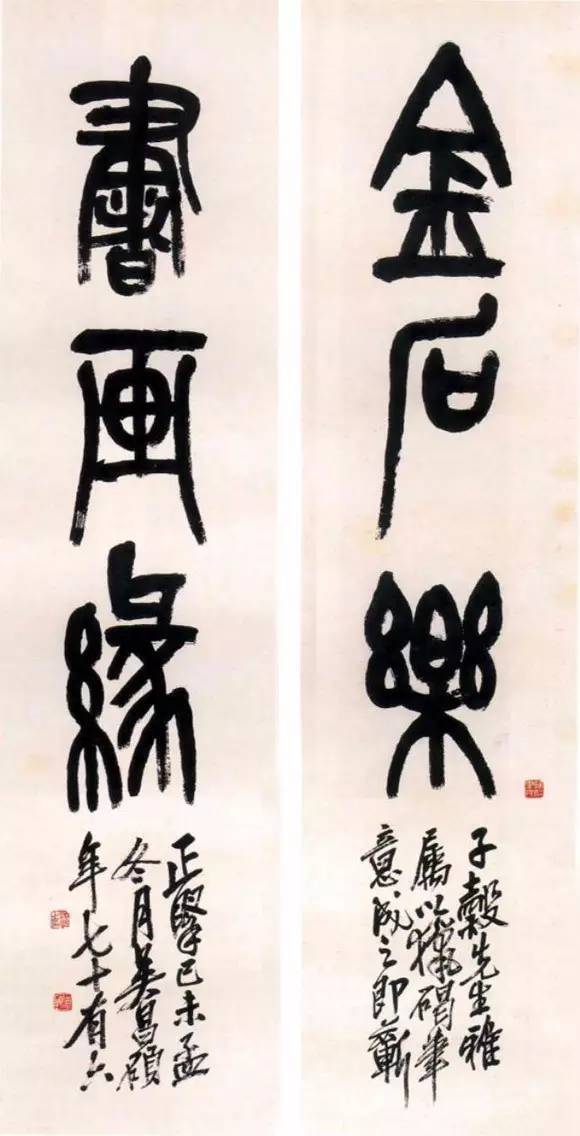 金石樂
子穀先生雅
屬以獵碣筆
意成之即蘄
書画緣
正擘己未孟
冬月吴昌碩
年七十有六